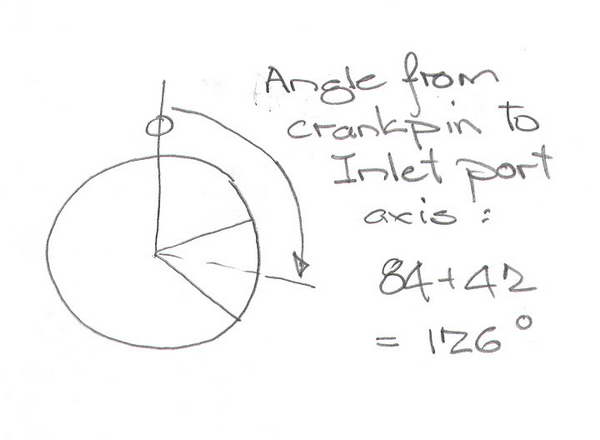 Angle from
crankpin to
Inlet port
axis :
84+42
= 126°